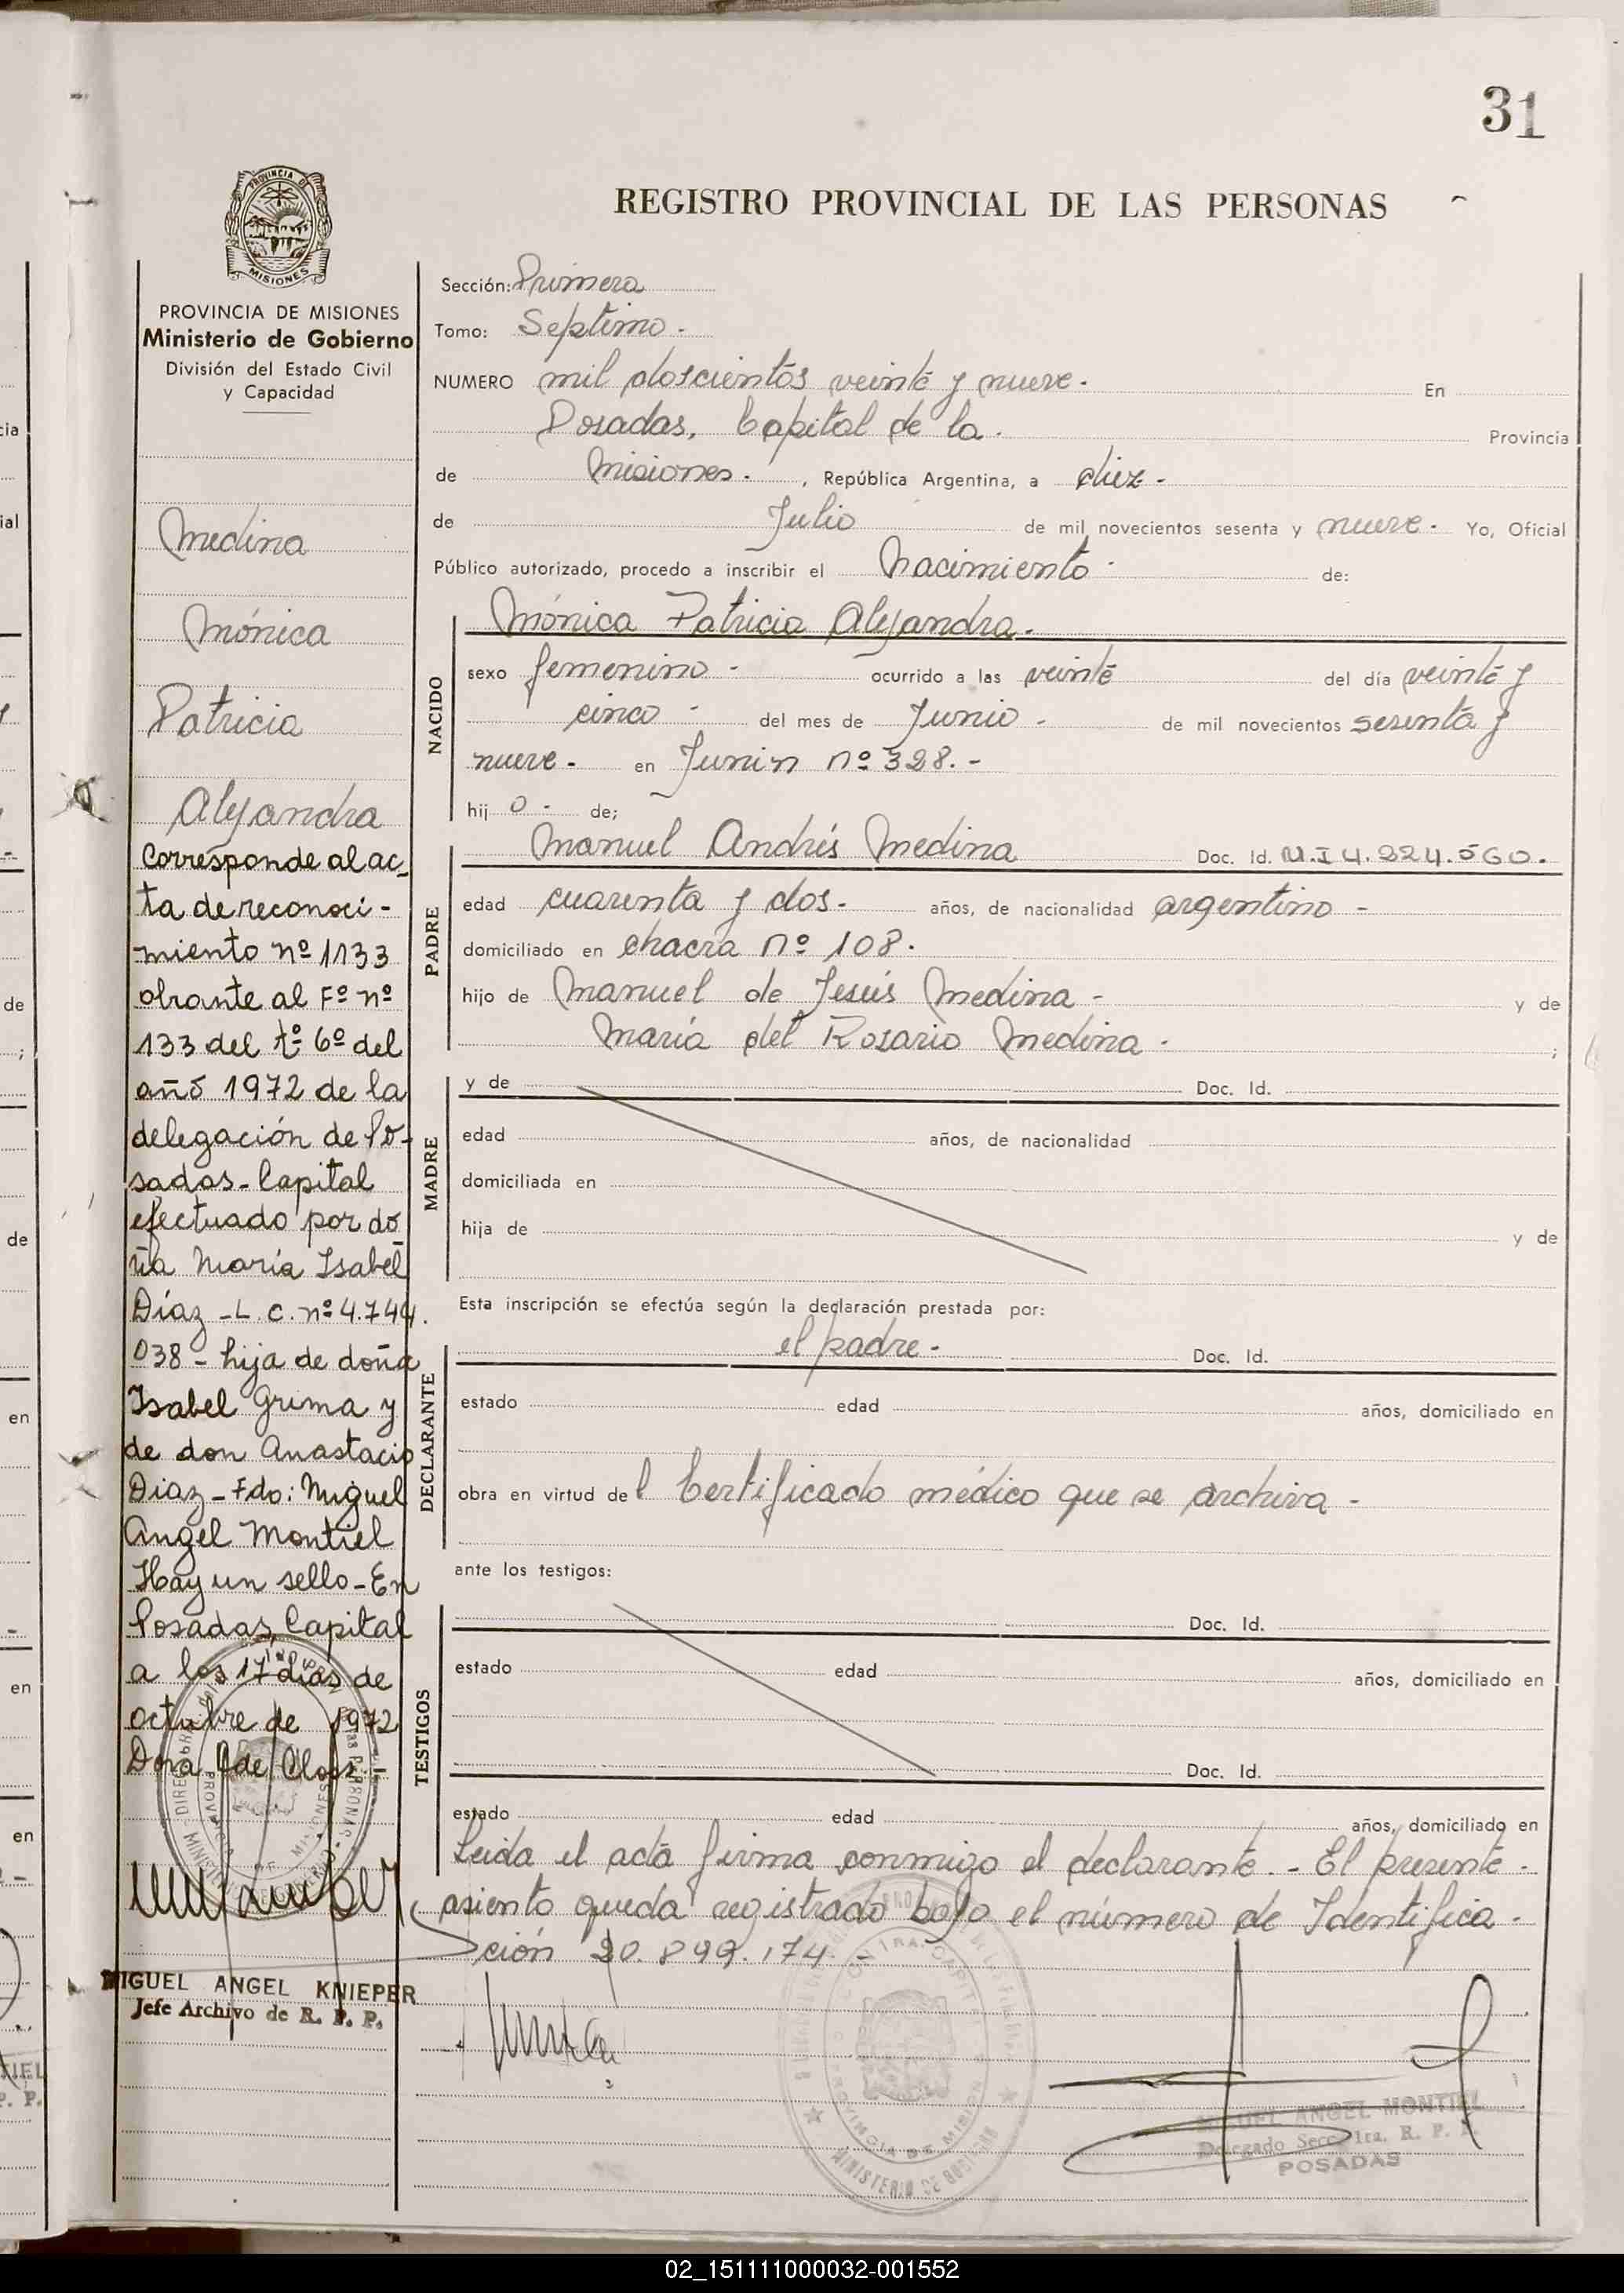 31
PROVINCIA DE
MISIONES
PROVINCIA DE MISIONES
Ministerio de Gobierno
División del Estado Civil
y Capacidad
Medina
Mónica
Patricia
Alejandra
Corresponde al ac_
ta de reconoci-
miento nº 1133
obrante al Fº nº
133 del tº 6º del
año 1972 de la
delegación de Po-
sadas-Capital
efectuado por do
ña María Isabel
Díaz - L. C. nº 4.744.
038 - hija de doña
Isabel Grima y
de don Anastacio
Diaz - Fdo: Miguel
Angel Montiel
Hay un sello - En
Posadas, Capital
a los 17 días de
octubre de 1972
Dora de
MIGUEL ANGEL KNIEPER
Jefe Archivo de R. P. P.
REGISTRO PROVINCIAL DE LAS PERSONAS
Sección: Primera
Tomo: Septimo.
NUMERO mil doscientos veinte y nueve. En
Posadas, Capital de la. Provincia
de Misiones. , República Argentina, a diez -
de Julio de mil novecientos sesenta y nueve. Yo, Oficial
Público autorizado, procedo a inscribir el Nacimiento. de:
NACIDO
Mónica Patricia Alejandra.
sexo femenino - ocurrido a las veinte del día veinte y
cinco - del mes de Junio - de mil novecientos sesenta y
nueve - en Junin nº 328. -
hij o - de;
PADRE
Manuel Andrés Medina Doc. Id. M.I 4.224.560.
edad cuarenta y dos- años, de nacionalidad argentino -
domiciliado en chacra nº 108.
hijo de Manuel de Jesús Medina - y de
María del Rosario Medina - ;
MADRE
y de Doc. Id.
edad años, de nacionalidad
domiciliada en
hija de y de
Esta inscripción se efectúa según la declaración prestada por:
DECLARANTE
el padre - Doc. Id.
estado edad años, domiciliado en
obra en virtud del Certificado médico que se archiva -
ante los testigos:
TESTIGOS
Doc. Id.
estado edad años, domiciliado en
Doc. Id.
estado edad años, domiciliado en
Leida el acta firma conmigo el declarante. - El presente -
asiento queda registrado bajo el número de Identifica -
ción 20.899.174. -
MIGUEL ANGEL MONTIEL
Delegado Secc. 1ra. R. P. P.
POSADAS
PROVINCIA DE MISIONES
MINISTERIO DE GOBIERNO
02_151111000032-001552